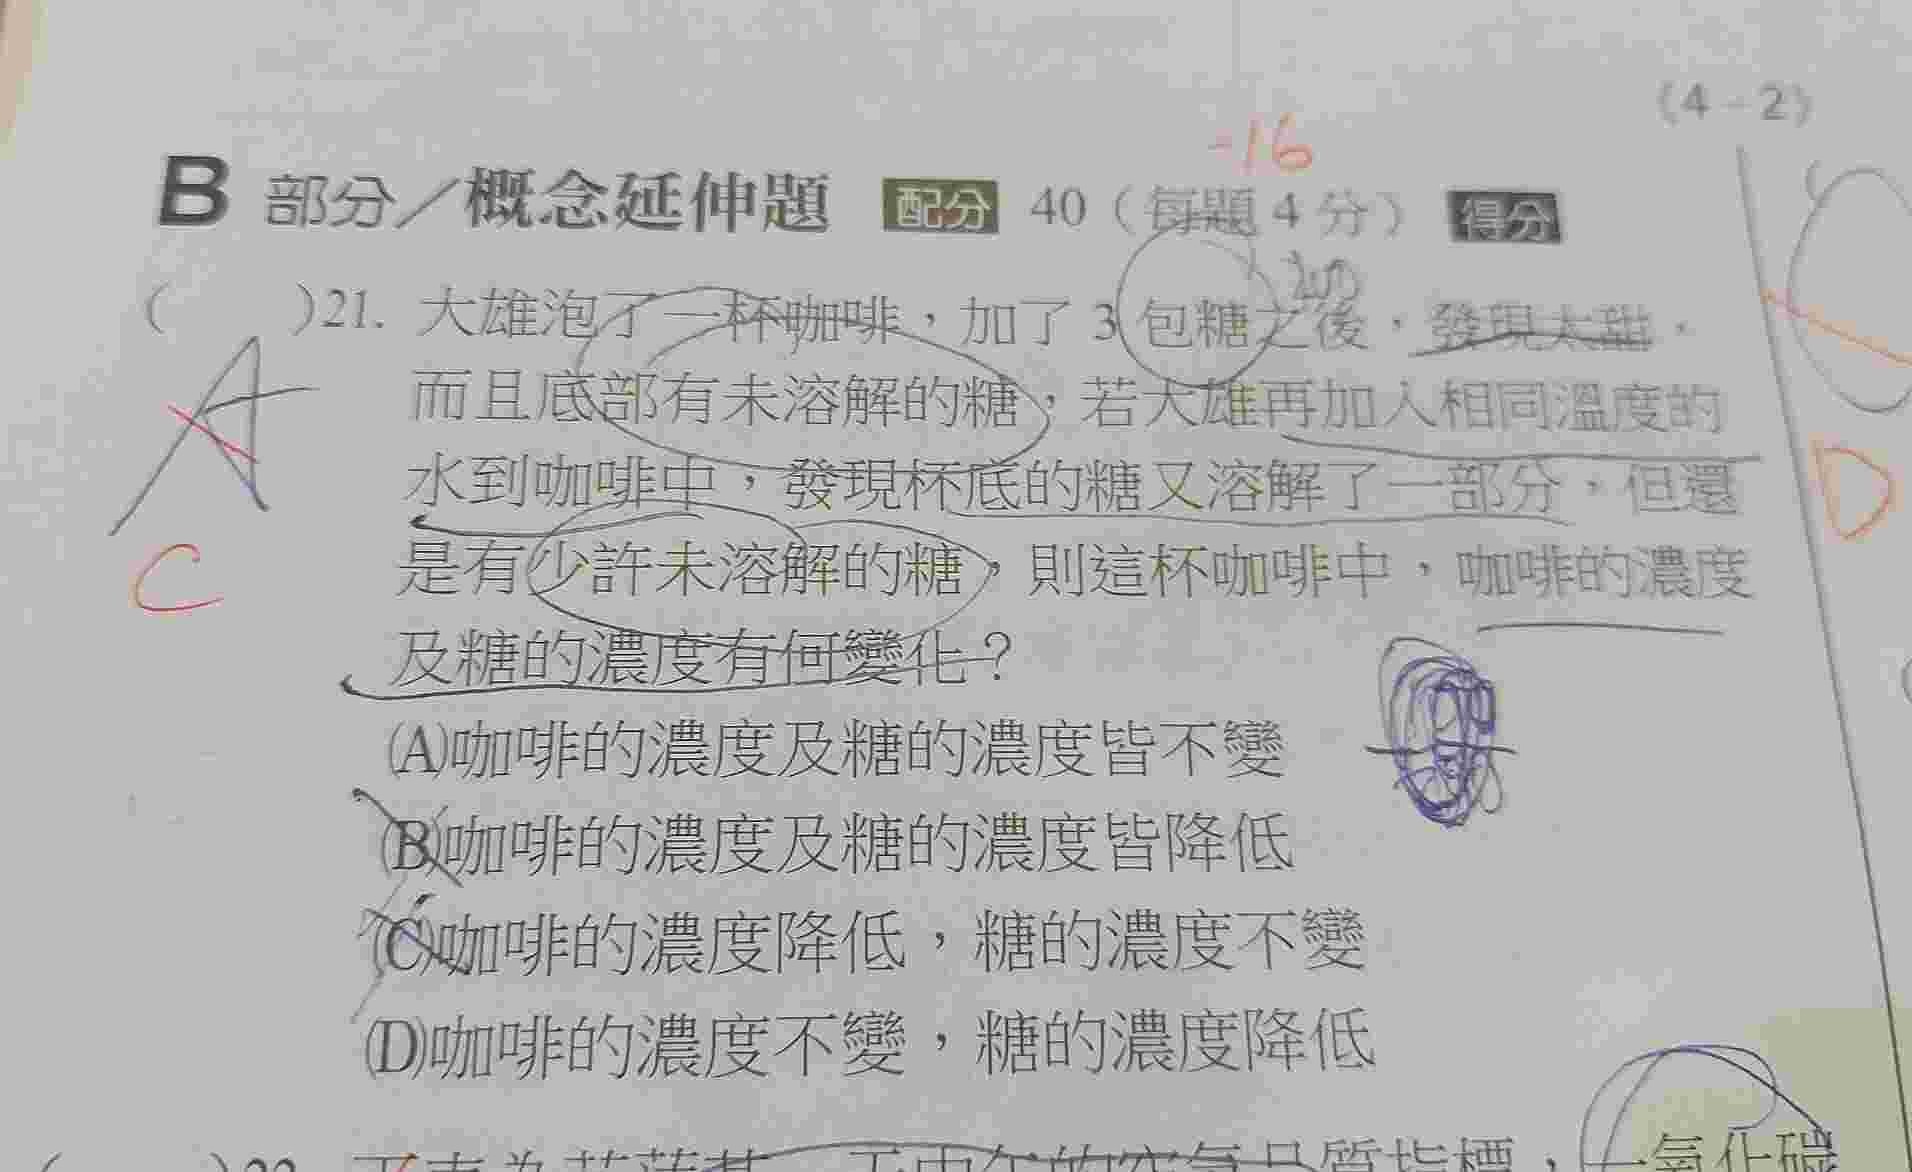 (4-2)
-16
B 部分/概念延伸題 配分 40(每題 4 分) 得分
( )21. 大雄泡了一杯咖啡,加了 3 包糖之後,發現太甜,
而且底部有未溶解的糖,若大雄再加入相同溫度的
水到咖啡中,發現杯底的糖又溶解了一部分,但還
是有少許未溶解的糖,則這杯咖啡中,咖啡的濃度
及糖的濃度有何變化?
A
C
D
(A)咖啡的濃度及糖的濃度皆不變
(B)咖啡的濃度及糖的濃度皆降低
(C)咖啡的濃度降低,糖的濃度不變
(D)咖啡的濃度不變,糖的濃度降低
一氧化碳